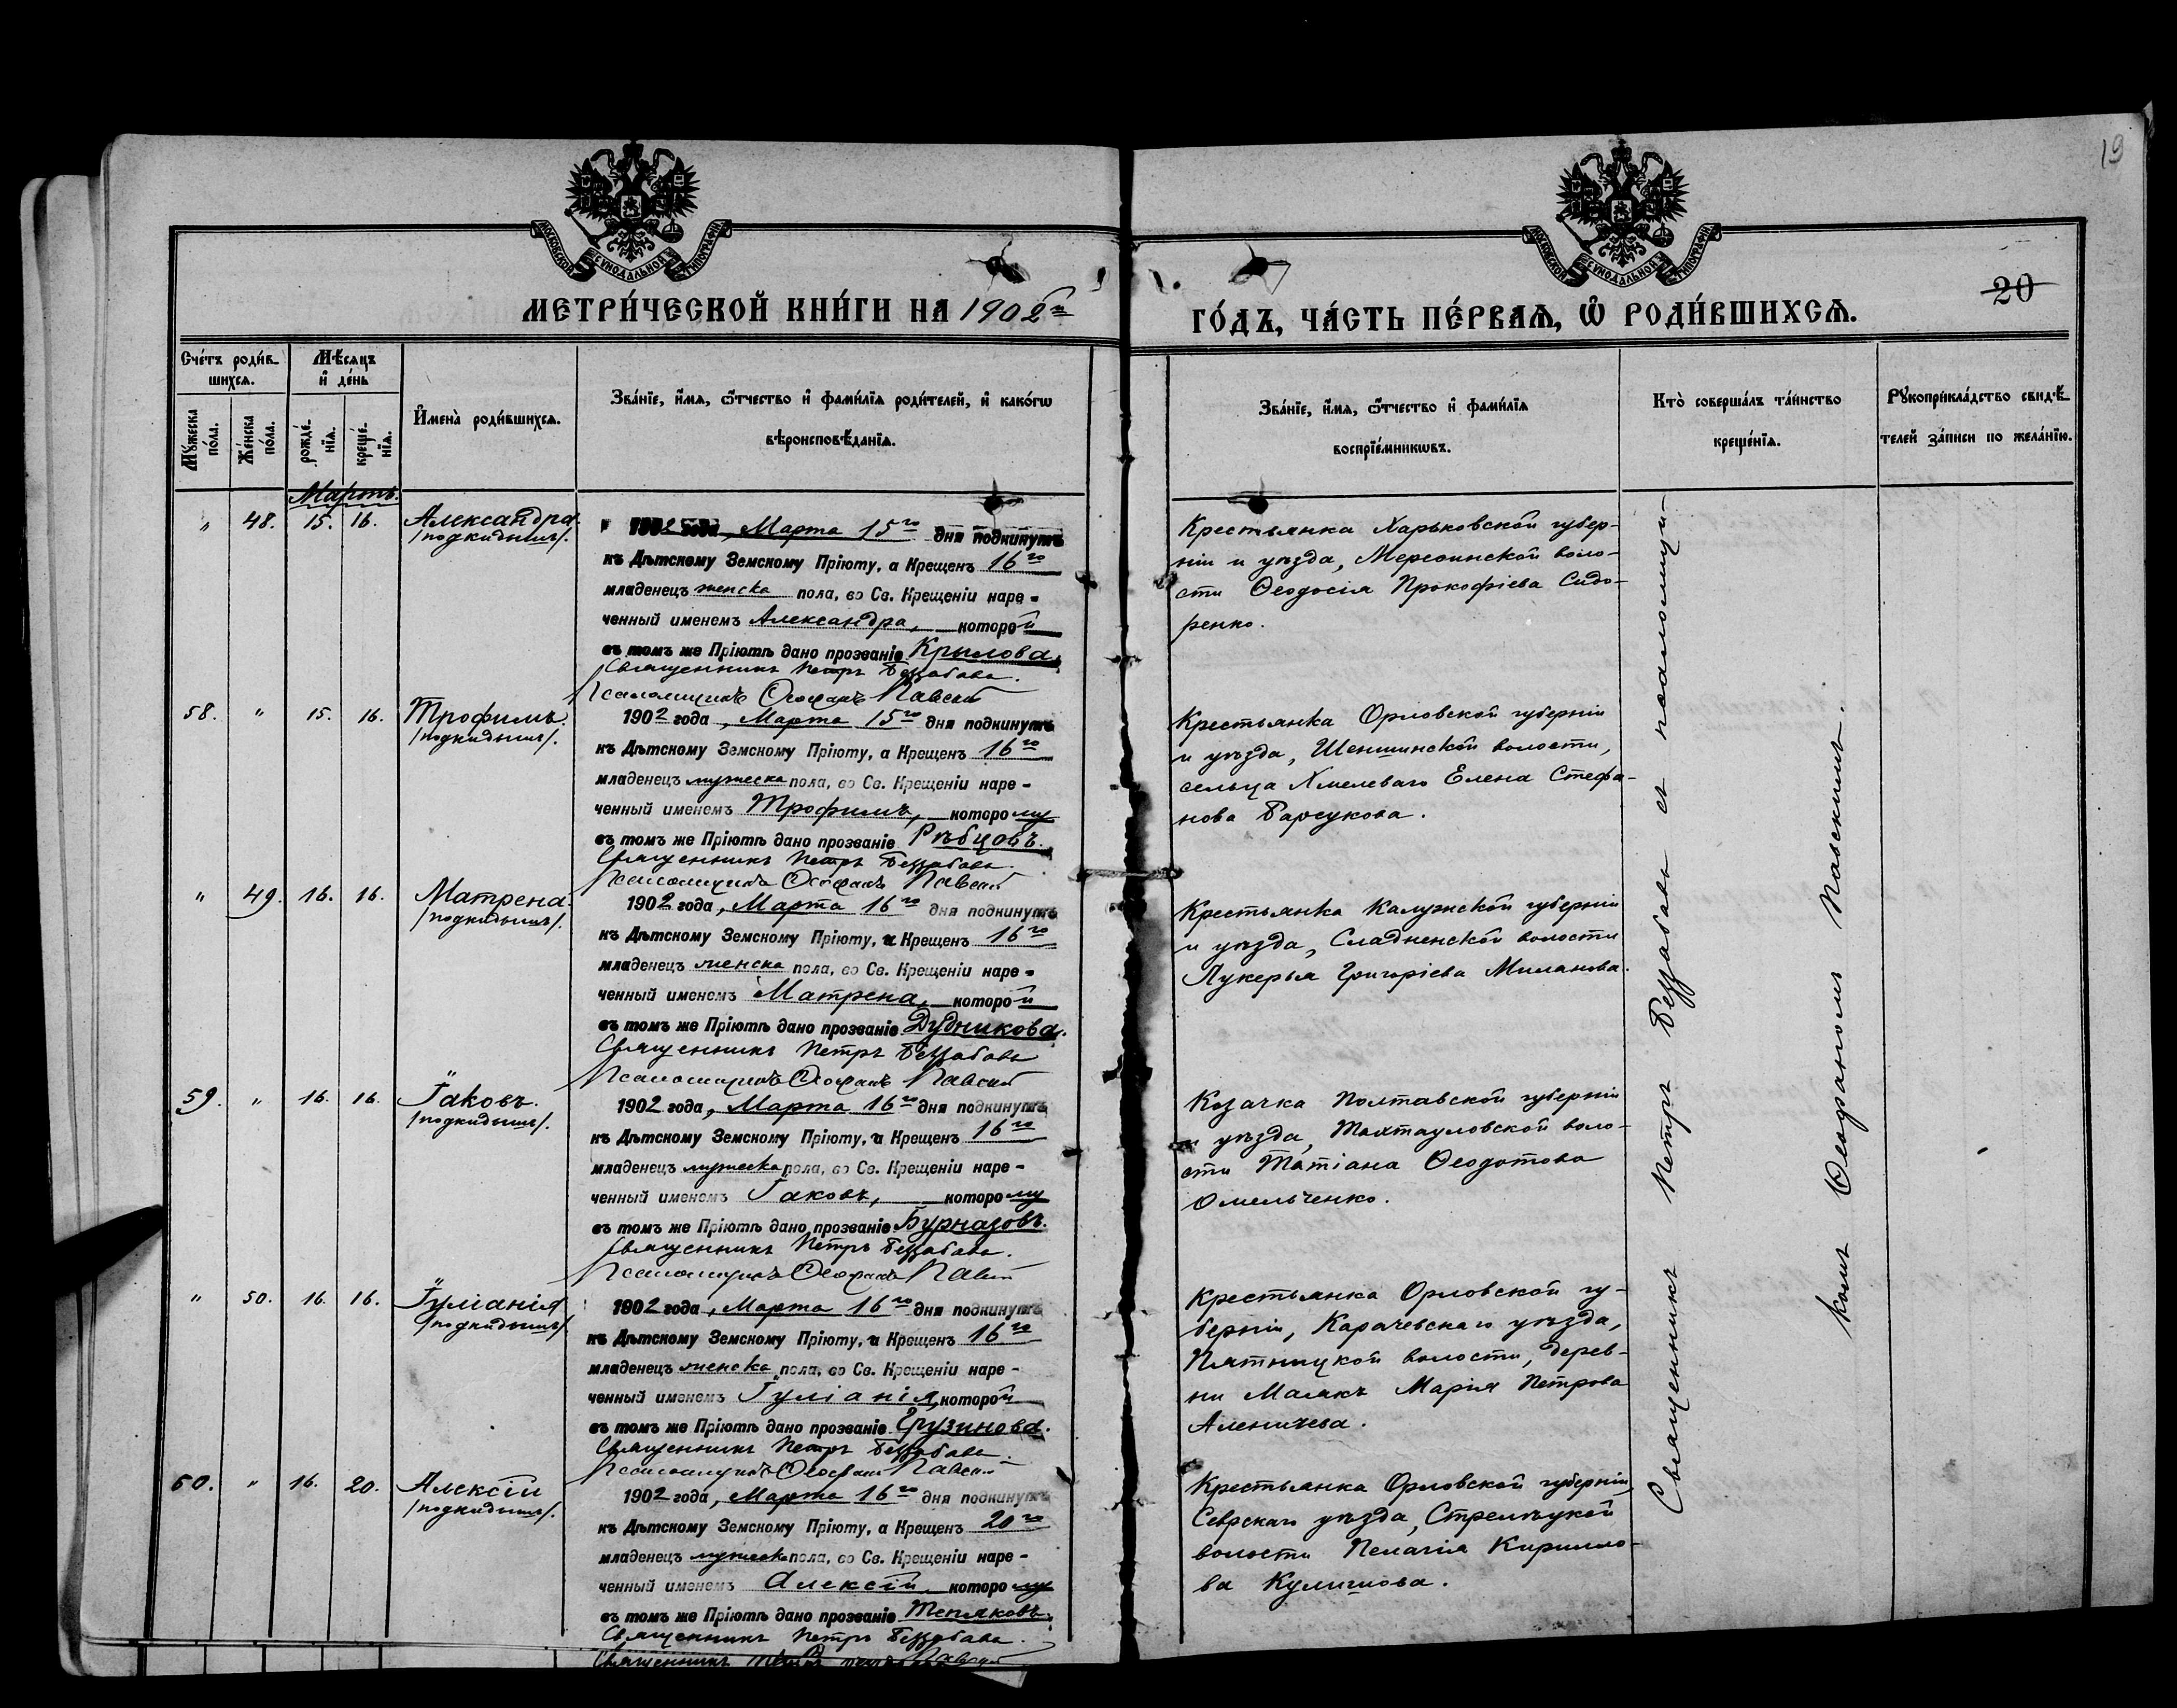 19
МОСКОВСКОЙ СУНОДАЛЬНОЙ ТИПОГРАФІИ
МОСКОВСКОЙ СУНОДАЛЬНОЙ ТИПОГРАФІИ
20
МЕТРИ́ЧЕСКОЙ КНИ́ГИ НА 1902й
ГО́ДЪ, ЧА́СТЬ ПЕ́РВАѦ, Ѿ РОДИ́ВШИХСѦ.
Сче́тъ роди́в-
шихсѧ.
Мꙋ́жеска по́ла.
Же́нска по́ла.
Мѣ́сѧцъ и҆ де́нь
рожде́-
нїѧ.
креще́-
нїѧ.
И҆мена̀ роди́вшихсѧ.
Зва́нїе, и҆́мѧ, ѻ҆́тчество и҆ фами́лїѧ роди́телей, и҆ како́гѡ
вѣроисповѣ́данїѧ.
Зва́нїе, и҆́мѧ, ѻ҆́тчество и҆ фами́лїѧ
воспрїе́мникѡвъ.
Кто̀ соверша́лъ та́инство
креще́нїѧ.
Рꙋкоприкла́дство свидѣ́-
телей за́писи по жела́нїю.
Мартъ.
" 48. 15. 16. Александра
/подкидышъ/.
1902 года, Марта 15го дня подкинутъ
къ Дѣтскому Земскому Пріюту, а Крещенъ 16го
младенецъ женска пола, во Св. Крещеніи наре-
ченный именемъ Александра, которой
въ томъ же Пріютѣ дано прозваніе Крылова.
Священникъ Петръ Беззабава.
Псаломщикъ Ѳеофанъ Павскій
Крестьянка Харьковской губер-
ніи и уѣзда, Мерефинской воло-
сти Ѳеодосія Прокофіева Сидо-
ренко.
58. " 15. 16. Трофимъ.
/подкидышъ/.
1902 года, Марта 15го дня подкинутъ
къ Дѣтскому Земскому Пріюту, а Крещенъ 16го
младенецъ мужеска пола, во Св. Крещеніи наре-
ченный именемъ Трофимъ, которому
въ томъ же Пріютѣ дано прозваніе Рѣбцовъ.
Священникъ Петръ Беззабава.
Псаломщикъ Ѳеофанъ Павскій
Крестьянка Орловской губерніи
и уѣзда, Шеншинской волости,
сельца Хмелеваго Елена Стефа-
нова Барсукова.
" 49. 16. 16. Матрена.
/подкидышъ/.
1902 года, Марта 16го дня подкинутъ
къ Дѣтскому Земскому Пріюту, а Крещенъ 16го
младенецъ женска пола, во Св. Крещеніи наре-
ченный именемъ Матрена, которой
въ томъ же Пріютѣ дано прозваніе Дудникова.
Священникъ Петръ Беззабава
Псаломщикъ Ѳеофанъ Павскій
Крестьянка Калужской губерніи
и уѣзда, Сладненской волости
Лукерья Григоріева Миланова.
59. " 16. 16. Іаковъ.
/подкидышъ/.
1902 года, Марта 16го дня подкинутъ
къ Дѣтскому Земскому Пріюту, а Крещенъ 16го
младенецъ мужеска пола, во Св. Крещеніи наре-
ченный именемъ Іаковъ, которому
въ томъ же Пріютѣ дано прозваніе Бурназовъ.
Священникъ Петръ Беззабава.
Псаломщикъ Ѳеофанъ Павскій
Козачка Полтавской губерніи
и уѣзда, Тахтауловской воло-
сти Татіана Ѳеодотова
Омельченко.
" 50. 16. 16. Іуліанія
/подкидышъ/.
1902 года, Марта 16го дня подкинутъ
къ Дѣтскому Земскому Пріюту, а Крещенъ 16го
младенецъ женска пола, во Св. Крещеніи наре-
ченный именемъ Іуліанія, которой
въ томъ же Пріютѣ дано прозваніе Грузинова.
Священникъ Петръ Беззабава
Псаломщикъ Ѳеофанъ Павскій
Крестьянка Орловской гу-
берніи, Карачевскаго уѣзда,
Пятницкой волости, дерев-
ни Маякъ Марія Петрова
Аленичева.
60. " 16. 20. Алексій
/подкидышъ/.
1902 года, Марта 16го дня подкинутъ
къ Дѣтскому Земскому Пріюту, а Крещенъ 20го
младенецъ мужеска пола, во Св. Крещеніи наре-
ченный именемъ Алексій, которому
въ томъ же Пріютѣ дано прозваніе Тепляковъ.
Священникъ Петръ Беззабава.
Крестьянка Орловской губерніи
Севрскаго уѣзда, Стрелецкой
волости Пелагія Кирилло-
ва
Священникъ Петръ Беззабава съ псаломщи-
комъ Ѳеофаномъ Павскимъ.